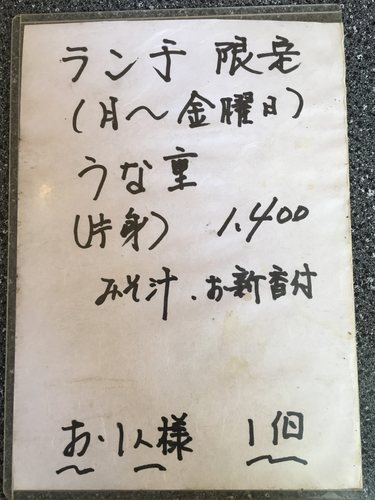 ランチ 限定
(月〜金曜日)
うな重
(片身) 1,400
みそ汁、お新香付
お1人様 1個